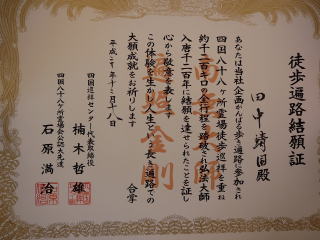 徒歩遍路結願証
田中靖国殿
あなたは当社企画かんぽる歩き遍路に参加され
四国八十八ヶ所霊場徒歩巡拝を重ね
約千二百キロの全行程を踏破され弘法大師
入唐千二百年に結願を達せられたことを証し
心から敬意を表します
この体験を生かし人生という長い遍路での
大願成就をお祈りします
合掌
平成十六年十二月十八日
四国巡拝センター代表取締役
楠木哲雄
四国八十八ヶ所霊場会公認大先達
石原満治
遍照金剛